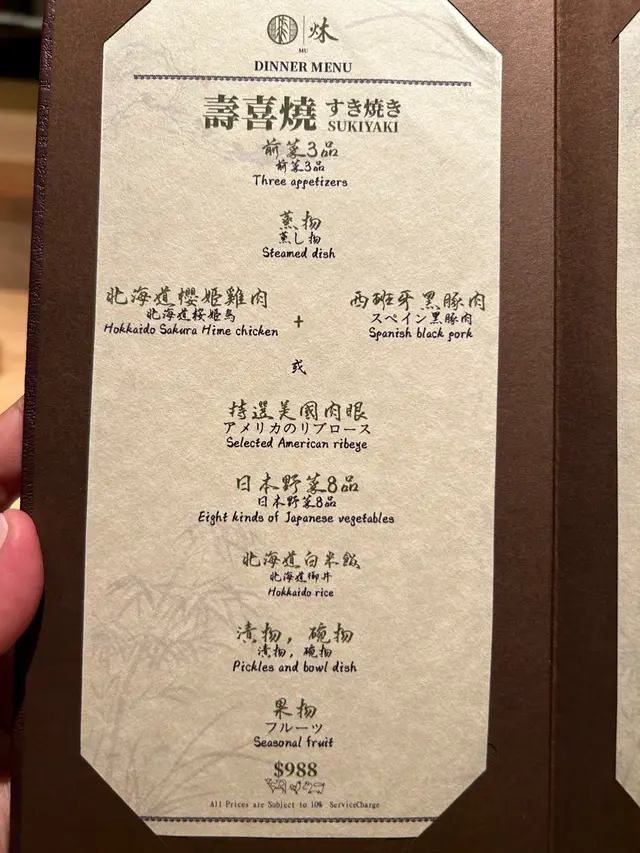 MU
DINNER MENU
壽喜燒 すき焼き
SUKIYAKI
前菜3品
前菜3品
Three appetizers
蒸物
蒸し物
Steamed dish
北海道櫻姬雞肉
北海道桜姫鳥
Hokkaido Sakura Hime chicken
+
西班牙黑豚肉
スペイン黒豚肉
Spanish black pork
或
特選美國肉眼
アメリカのリブロース
Selected American ribeye
日本野菜8品
日本野菜8品
Eight kinds of Japanese vegetables
北海道白米飯
北海道御丼
Hokkaido rice
漬物，碗物
漬物，碗物
Pickles and bowl dish
果物
フルーツ
Seasonal fruit
$988
All Prices are Subject to 10% ServiceCharge